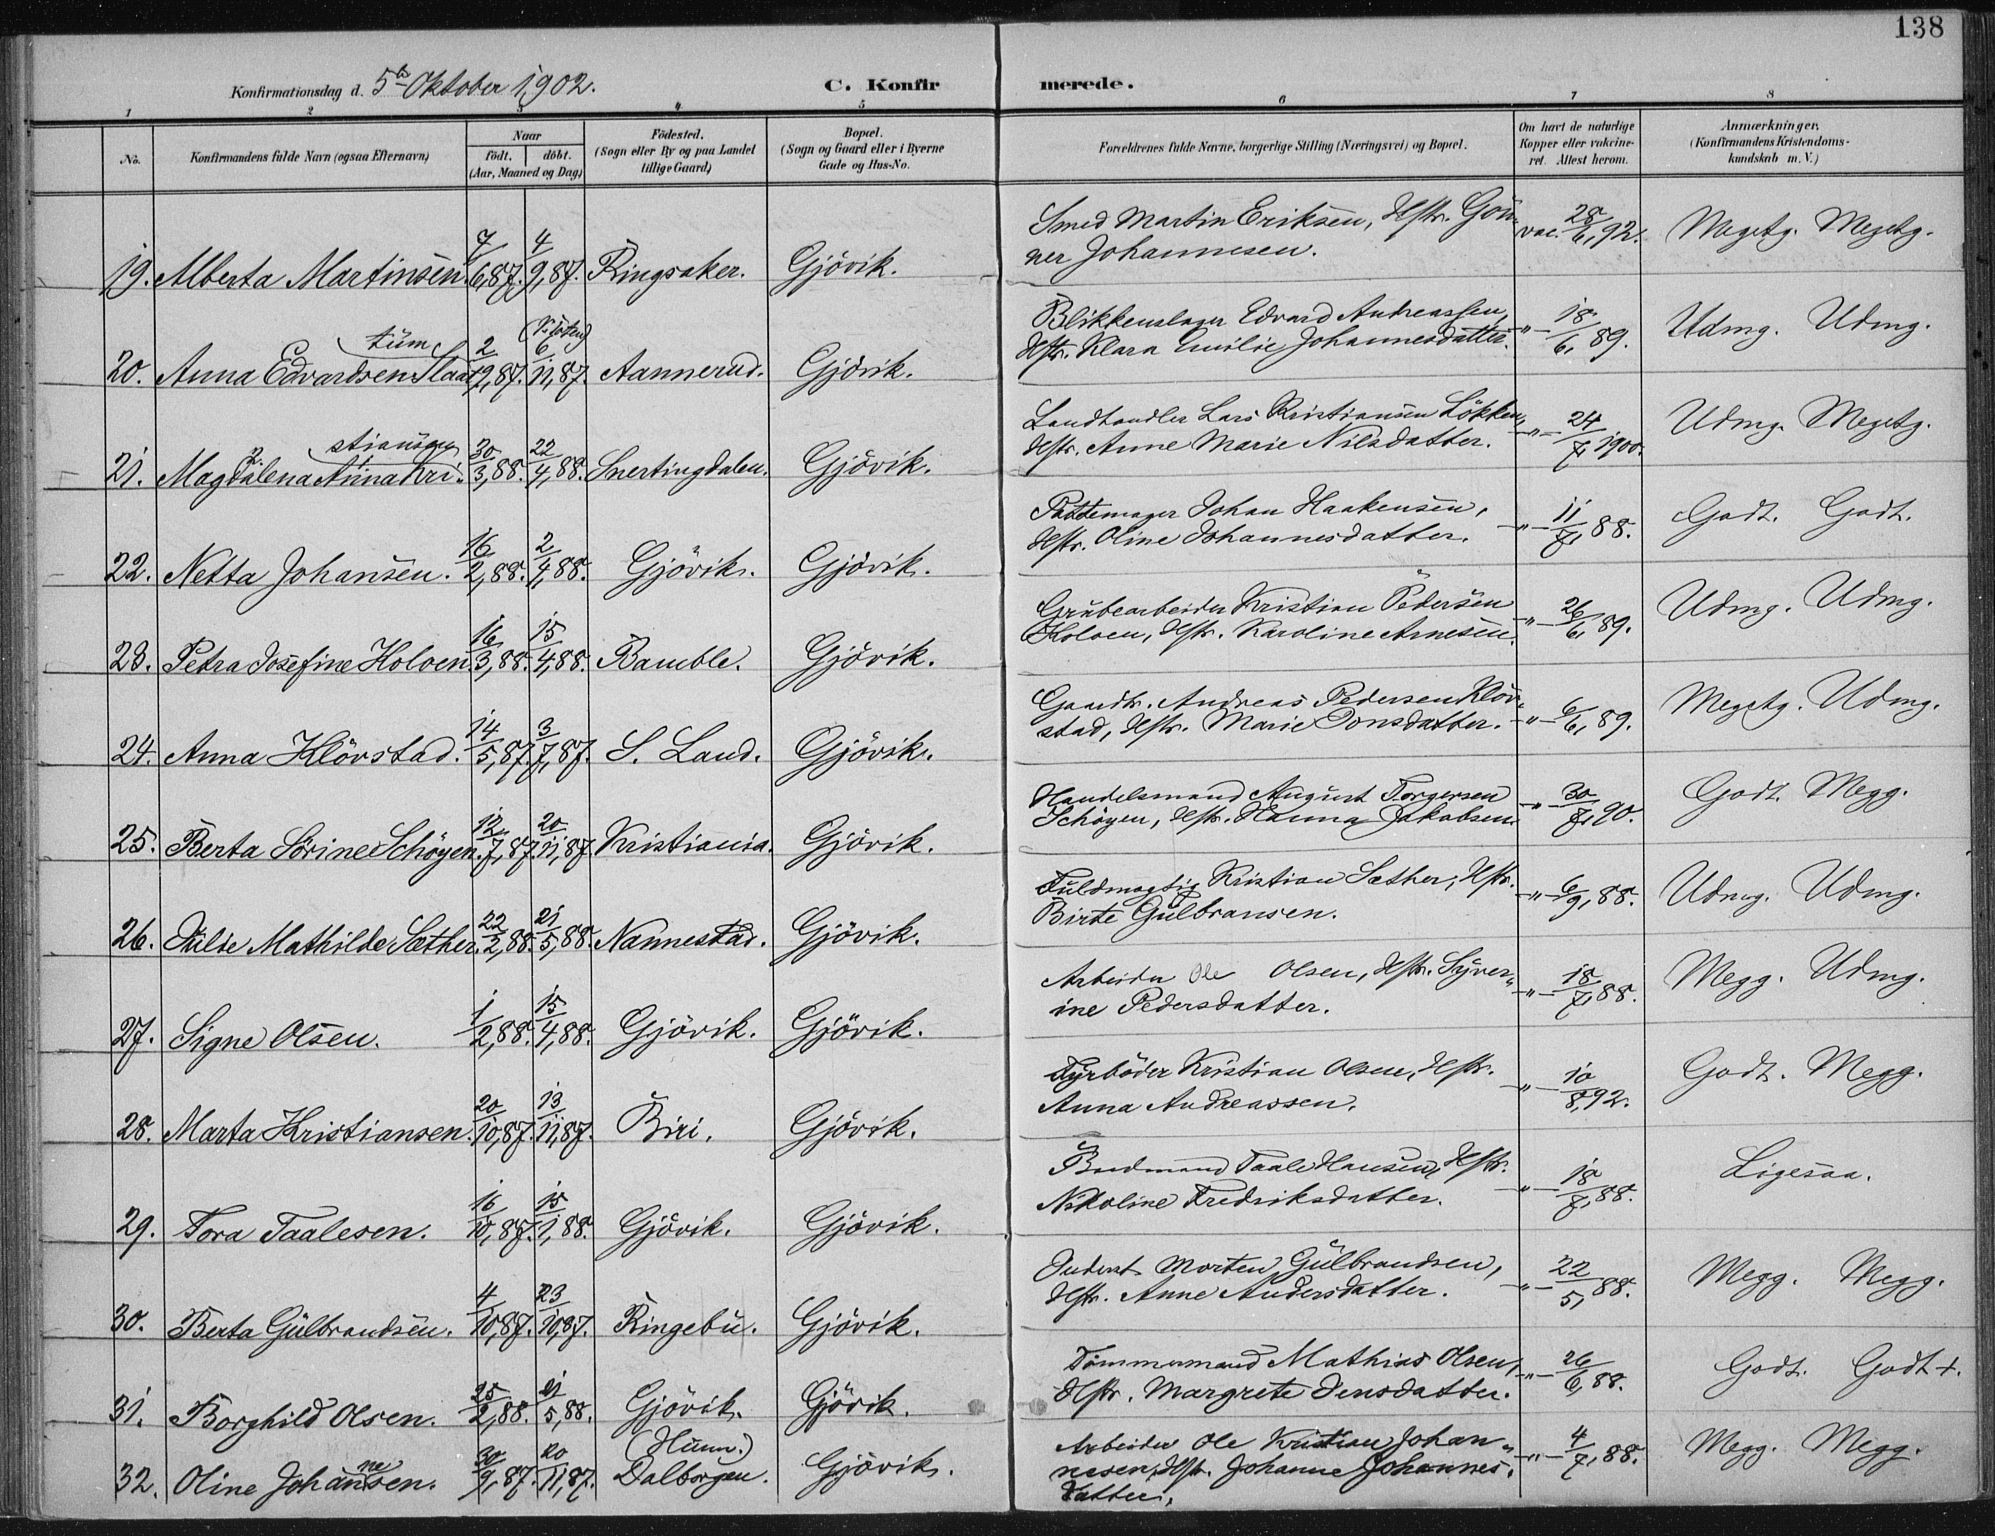 138
Konfirmationsdag d. 5te Oktober 1902. C. Konfirmerede.
1 2 3 4 5 6 7 8
No. Konfirmandens fulde Navn (ogsaa Efternavn) Naar födt. döbt. (Aar, Maaned og Dag) Födested. (Sogn eller By og paa Landet tillige Gaard) Bopæl. (Sogn og Gaard eller i Byerne Gade og Hus-No. Forældrenes fulde Navne, borgerlige Stilling (Næringsvei) og Bopæl. Om havt de naturlige Kopper eller vakcineret. Attest herom. Anmærkninger. (Konfirmandens Kristendomskundskab m. V.)
19. Alberta Martinsen. 7/6, 87. 4/9, 87. Ringsaker. Gjövik. Smed Martin Eriksen, Hstr. Gunner Johannesen. vac. 28/6, 92. Megetg. Megetg.
20. Anna Edvardsen Slaattum 2/9, 87. 6/11, 87. Aannerud. Gjövik. Blikkenslager Edvard Andreassen, Hstr. Klara Emilie Johannesdatter. -"- 18/6, 89. Udmg. Udmg.
21. Magdalena Anna Kristiansen 30/3, 88. 22/4, 88. Snertingdalen. Gjövik. Landhandler Lars Kristiansen Lökken, Hstr. Anne Marie Nilsdatter. -"- 24/7, 1900. Udmg. Megetg.
22. Netta Johansen. 16/2, 88. 2/4, 88. Gjövik. Gjövik. Pottemager Johan Haakensen, Hstr. Oline Johannesdatter. -"- 11/7, 88. Godt. Godt.
23. Petra Josefine Holoen 16/3, 88. 15/4, 88. Bamble. Gjövik. Grubearbeider Kristian Pedersen Holoen, Hstr. Karoline Arnesen. -"- 26/6, 89. Udmg. Udmg.
24. Anna Klövstad. 14/5, 87. 3/7, 87. S. Land. Gjövik. Gaardbr. Andreas Pedersen Klövstad, Hstr. Marie Jonsdatter. -"- 6/6, 89. Megetg. Udmg.
25. Berta Sörine Schöyen. 12/7, 87. 20/11, 87. Kristiania. Gjövik. Handelsmand August Torgersen Schöyen, Hstr. Hanna Jakobsen. -"- 30/7, 90. Godt. Megg.
26. Julie Mathilde Sæther. 22/2, 88. 21/5, 88. Nannestad. Gjövik. Fuldmægtig Kristian Sæther, Hstr. Birte Gulbransen. -"- 6/9, 88. Udmg. Udmg.
27. Signe Olsen. 1/2, 88. 15/4, 88. Gjövik. Gjövik. Arbeider Ole Olsen, Hstr. Syverine Pedersdatter. -"- 18/7, 88. Megg. Udmg.
28. Marta Kristiansen. 20/10, 87. 13/11, 87. Biri. Gjövik. Fyrböder Kristian Olsen, Hstr. Anna Andreassen. -"- 10/8, 92. Godt. Megg.
29. Tora Taalesen. 16/10, 87. 15/1, 88. Gjövik. Gjövik. Taale Hansen, Hstr. Nikoline Fredriksdatter. -"- 18/7, 88. Ligesaa.
30. Berta Gulbrandsen. 4/10, 87. 23/10, 87. Ringebu. Gjövik. Inderst Morten Gulbrandsen, Hstr. Anne Andersdatter. -"- 22/5, 88. Megg. Megg.
31. Borghild Olsen. 25/2, 88. 21/5, 88. Gjövik. Gjövik. Tömmermand Mathias Olsen, Hstr. Margrete Jensdatter. -"- 26/6, 88. Godt. Godt+.
32. Oline Johannesen. 30/9, 87. 20/11, 87. (Hunn.) Dalborgen. Gjövik. Arbeider Ole Kristian Johannesen, Hstr. Johanne Johannesdatter. -"- 4/7, 88. Megg. Megg.